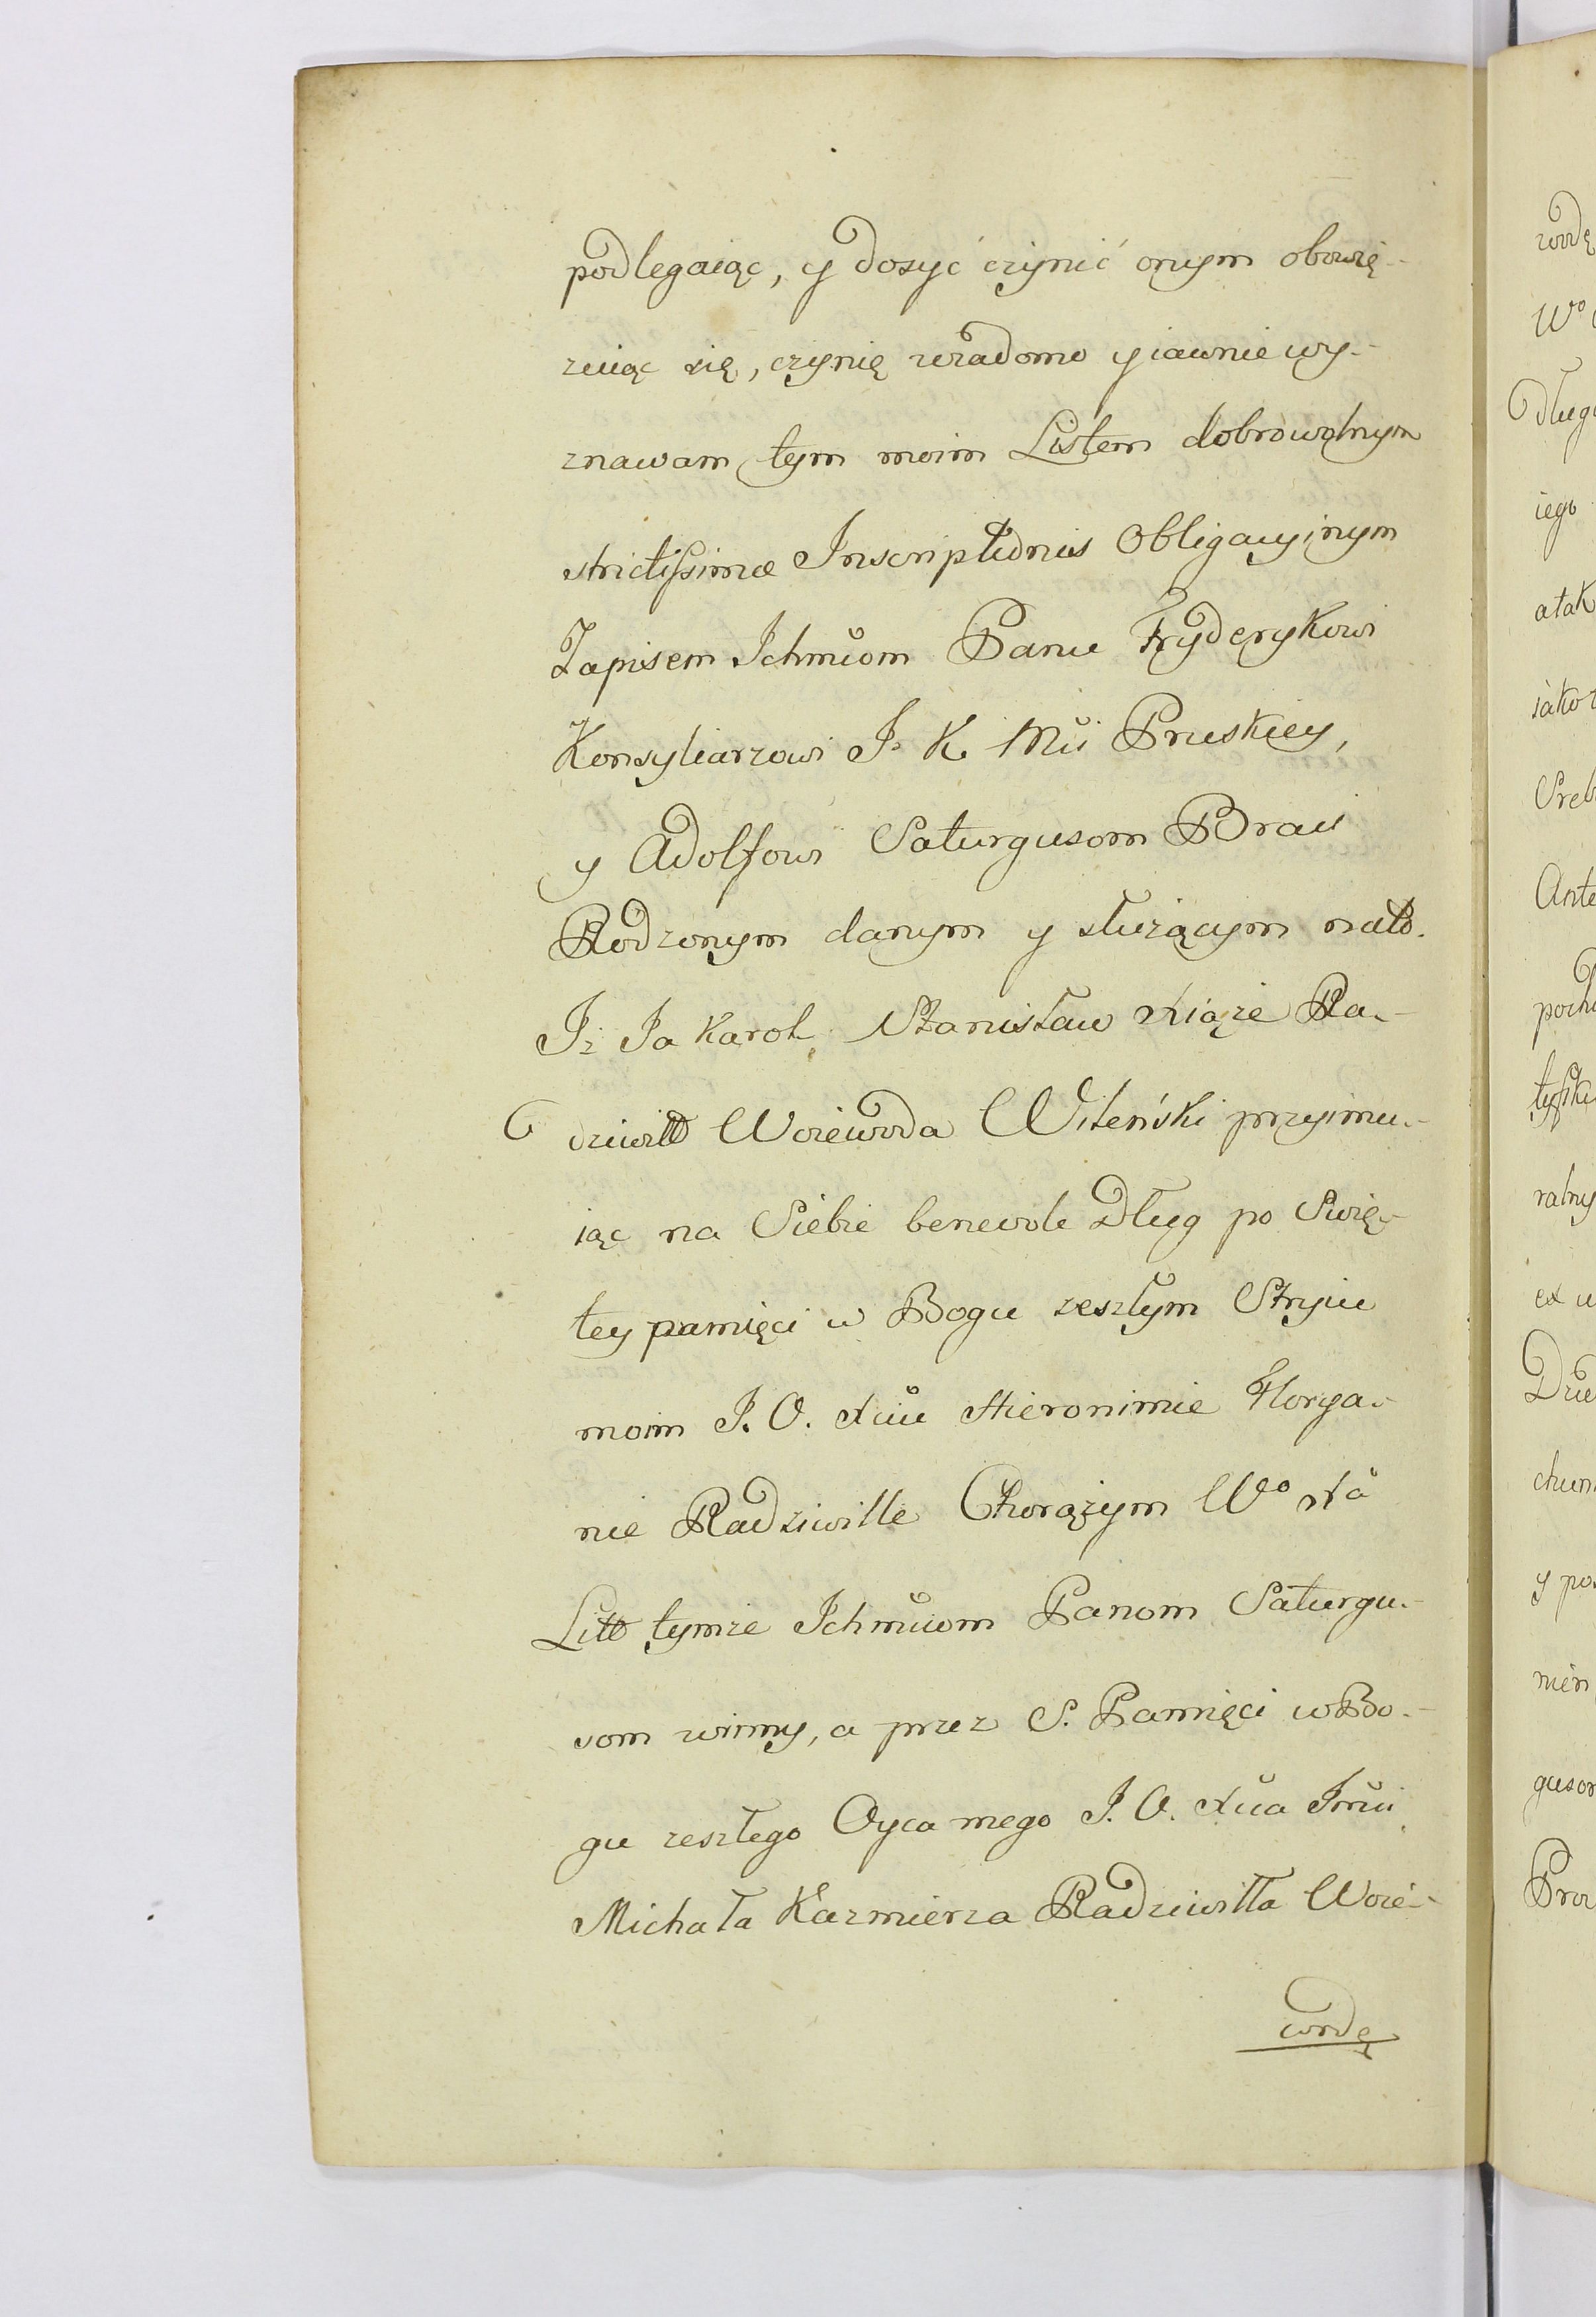 podlegaiąc, y dosyć czynić onym obowię-
zuiąc się, czynię wiadomo y iawnie wy-
znawam tym moim Listem dobrowolnym
strictissimæ Inscriptionis Obligacyinym
Zapisem Ichmciom Panu Fryderykowi
Konsyliarzowi J. K. Mci Pruskiey,
y Adolfowi Saturgusom Braci
Rodzonym danym y służącym na to.
Iż Ja Karol Stanisław Xiąże Ra-
dziwiłł Woiewoda Wileński przyimu-
iąc na Siebie benevole Dług po Swię-
tey pamięci w Bogu zeszłym Stryiu
moim J. O. Xciu Hieronimie Florya-
nie Radziwille Chorążym Wo Xa
Litt tymże Ichmciom Panom Saturgu-
som winny, a przez S. Pamięci w Bo-
gu zeszłego Oyca mego J. O. Xcia Jmci
Michała Kazmierza Radziwiłła Woie-
wodę
wodę
Wo
Dług
iego
a tak
iako
Sreb
Ante
poch
ralny
ex
chun
y po
nien
guson